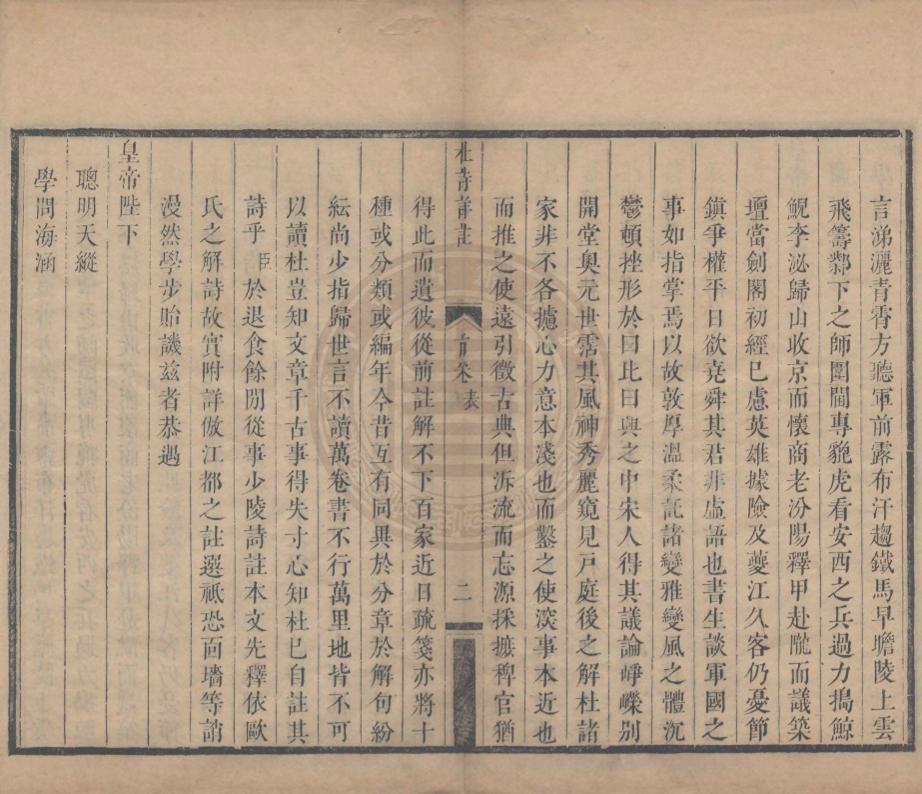 言涕灑青霄方聽軍前露布汗趨鐵馬早瞻陵上雲
飛籌鄴下之師圍閫專貔虎看安西之兵過力搗鯨
鯢李泌歸山收京而懷商老汾陽釋甲赴隴而議築
壇當劍閣初經巳慮英雄據險及夔江久客仍憂節
鎭爭權平日欲堯舜其君非虛語也書生談軍國之
事如指掌焉以故敦厚溫柔託諸變雅變風之體沉
鬱頓挫形於曰比曰興之中宋人得其議論崢嶸別
開堂奥元世霑其風神秀麗窺見戸庭後之解杜諸
家非不各攄心力意本淺也而鑿之使深事本近也
而推之使遠引徵古典但泝流而忘源採摭稗官猶
杜詩詳註 首卷 表 二
得此而遺彼從前註解不下百家近日疏箋亦將十
種或分類或編年今昔互有同異於分章於解句紛
紜尚少指歸世言不讀萬卷書不行萬里地皆不可
以讀杜豈知文章千古事得失寸心知杜巳自註其
詩乎臣於退食餘閒從事少陵詩註本文先釋依歐
氏之解詩故實附詳倣江都之註選祇恐面墻等誚
漫然學步貽譏兹者恭遇
皇帝陛下
聰明天縱
學問海涵